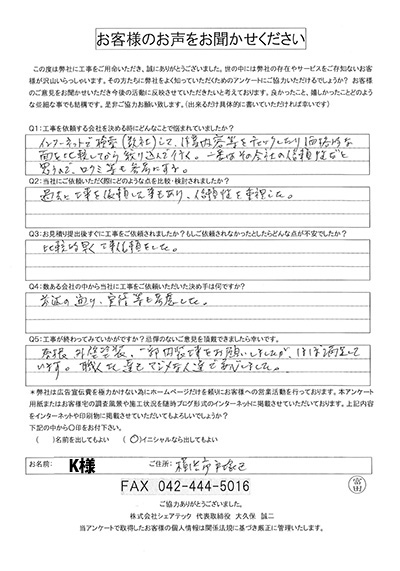 お客様のお声をお聞かせください
この度は弊社に工事をご用命いただき、誠にありがとうございました。世の中には弊社の存在やサービスをご存知ないお客
様が沢山いらっしゃいます。その方たちに弊社をよく知っていただくためのアンケートにご協力いただけるでしょうか？ お客様
のご意見をお聞かせいただき今後の活動に反映させていただきたいと考えております。良かったこと、嬉しかったことどのよう
な些細な事でも結構です。是非ご協力お願い致します。（出来るだけ具体的に書いていただければ幸いです）
Q1：工事を依頼する会社を決める時にどんなことで悩まれていましたか？
インターネットで検索（数社）して、作業内容等をチェックしたり価格的な
面を比較してから絞り込んで行く。一番はその会社の信頼性だと
思うので、口コミ等も参考にする。
Q2：当社にご依頼いただく際にどのような点を比較・検討されましたか？
過去に工事を依頼した事もあり、信頼性を重視した。
Q3：お見積り提出後すぐに工事をご依頼されましたか？もしご依頼されなかったとしたらどんな点が不安でしたか？
比較的早く工事依頼をした。
Q4：数ある会社の中から当社に工事をご依頼いただいた決め手は何ですか？
前述の通り、実績等も考慮した。
Q5：工事が終わってみていかがですか？忌憚のないご意見を頂戴できましたら幸いです。
屋根、外壁塗装、一部内装工事をお願いしましたが、ほぼ満足して
います。職人
＊弊社は広告宣伝費を極力かけない為にホームページだけを頼りにお客様への営業活動を行っております。本アンケート
用紙またはお客様宅の調査風景や施工状況を随時ブログ形式のインターネットに掲載させていただいております。上記内容
をインターネットや印刷物に掲載させていただいてもよろしいでしょうか？
下記の中から〇印をお付け下さい。
（　）名前を出してもよい　（〇）イニシャルなら出してもよい
お名前： K様 ご住所： 横浜市戸塚区
FAX 042-444-5016
富田
ご協力ありがとうございました。
株式会社シェアテック 代表取締役 大久保 誠二
当アンケートで取得したお客様の個人情報は関係法規に基づき厳正に管理いたします。